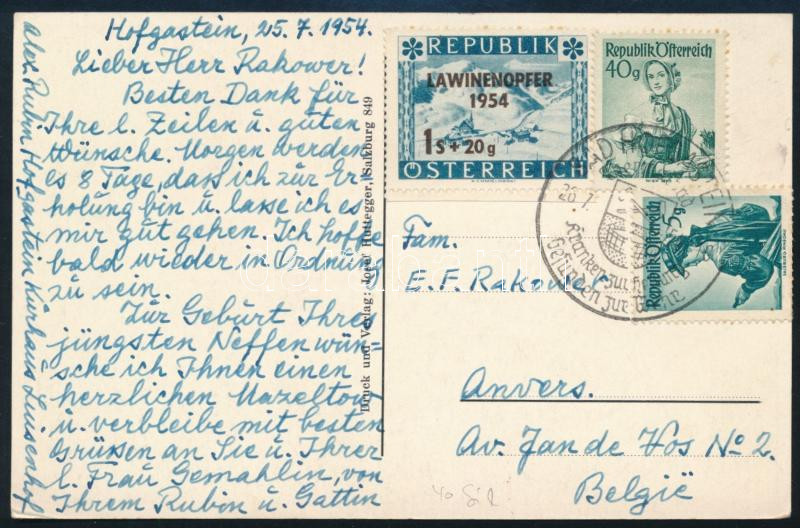 Hofgastein, 25.7.1954.
Lieber Herr Rakower!
Besten Dank für
Ihre l. Zeilen u. guten
Wünsche. Morgen werden
es 8 Tage, dass ich zur Er-
holung bin u. lasse ich es
mir gut gehen. Ich hoffe
bald wieder in Ordnung
zu sein.
Zur Geburt Ihres
jüngsten Neffen wün-
sche ich Ihnen einen
herzlichen Mazeltow
u. verbleibe mit besten
Grüssen an Sie u. Ihrer
l. Frau Gemahlin, von
Ihrem Rubin u. Gattin
Rubin Hofgastein Kurhaus Luisenhof
Druck und Verlag: Josef Huttegger, Salzburg 849
REPUBLIK
LAWINENOPFER
1954
1s + 20g
ÖSTERREICH
Republik Österreich
40g
Republik Österreich
5g
BAD
26.7.
Fam.
E. F. Rakower
Anvers.
Av. Jan de Vos No 2.
België